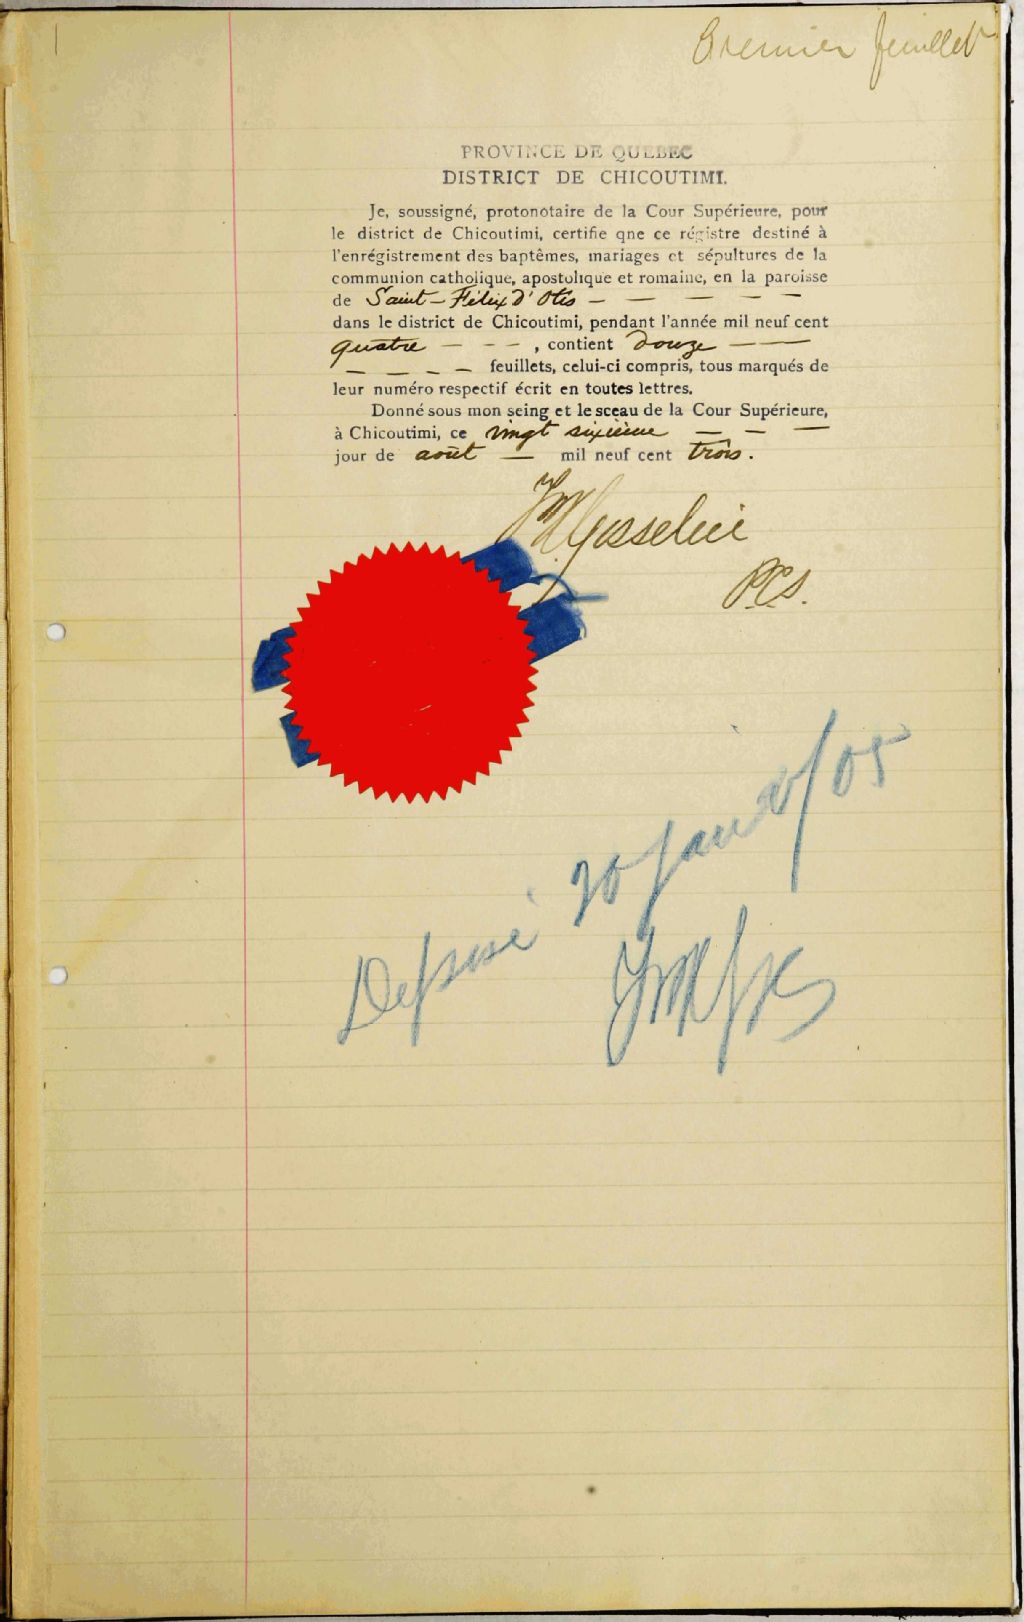 Premier feuillet
PROVINCE DE QUEBEC
DISTRICT DE CHICOUTIMI.
Je, soussigné, protonotaire de la Cour Supérieure, pour
le district de Chicoutimi, certifie qne ce régistre destiné à
l'enrégistrement des baptêmes, mariages et sépultures de la
communion catholique, apostolique et romaine, en la paroisse
de Saint-Félix d'Otis - - - - - -
dans le district de Chicoutimi, pendant l'année mil neuf cent
quatre - - - , contient douze - -
- - - - feuillets, celui-ci compris, tous marqués de
leur numéro respectif écrit en toutes lettres.
Donné sous mon seing et le sceau de la Cour Supérieure,
à Chicoutimi, ce vingt sixième - - -
jour de août - mil neuf cent trois.
Gosselin
P.C.S.
Déposé 20 janv/05